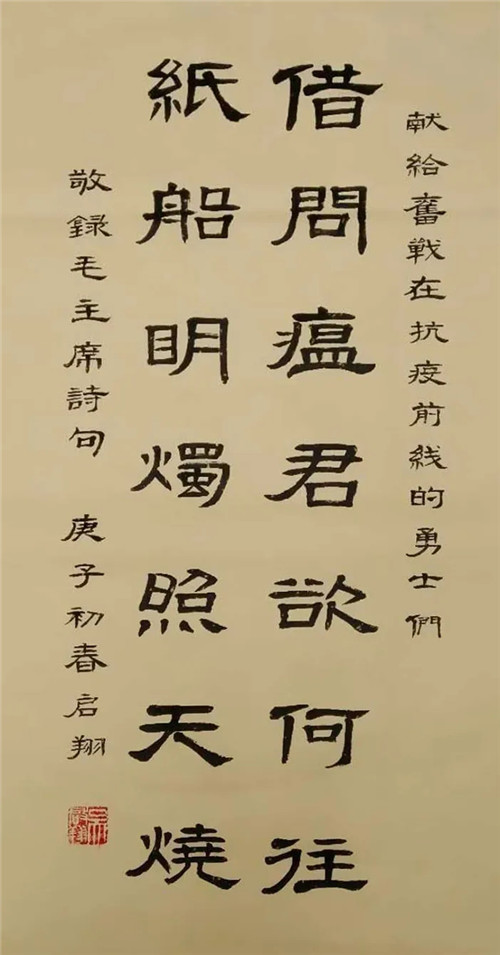 献给奮戰在抗疫前线的勇士們
借問瘟君欲何往
紙船明燭照天燒
敬録毛主席詩句 庚子初春启翔